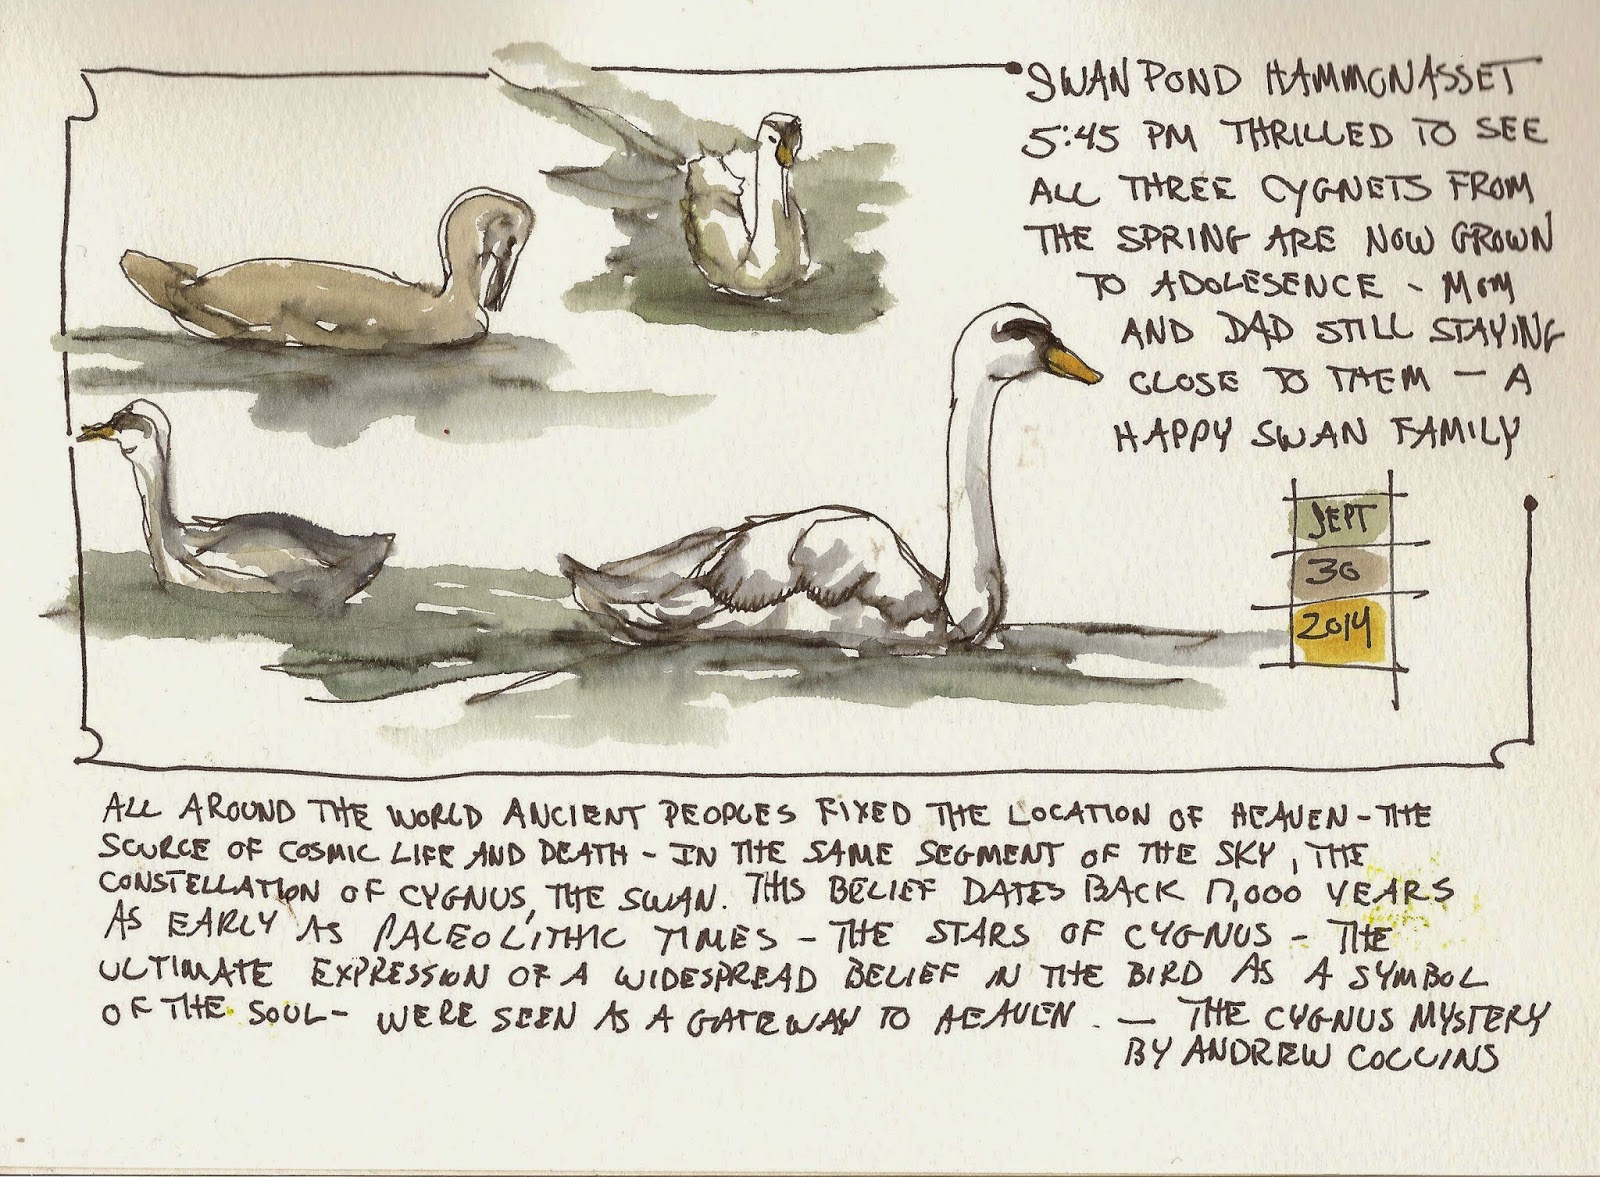 SWAN POND HAMMONASSET
5:45 PM THRILLED TO SEE
ALL THREE CYGNETS FROM
THE SPRING ARE NOW GROWN
TO ADOLESENCE - MOM
AND DAD STILL STAYING
CLOSE TO THEM - A
HAPPY SWAN FAMILY
SEPT
30
2014
ALL AROUND THE WORLD ANCIENT PEOPLES FIXED THE LOCATION OF HEAVEN - THE
SOURCE OF COSMIC LIFE AND DEATH - IN THE SAME SEGMENT OF THE SKY, THE
CONSTELLATION OF CYGNUS, THE SWAN. THIS BELIEF DATES BACK 17,000 YEARS
AS EARLY AS PALEOLITHIC TIMES - THE STARS OF CYGNUS - THE
ULTIMATE EXPRESSION OF A WIDESPREAD BELIEF IN THE BIRD AS A SYMBOL
OF THE SOUL - WERE SEEN AS A GATEWAY TO HEAVEN. - THE CYGNUS MYSTERY
BY ANDREW COLLINS